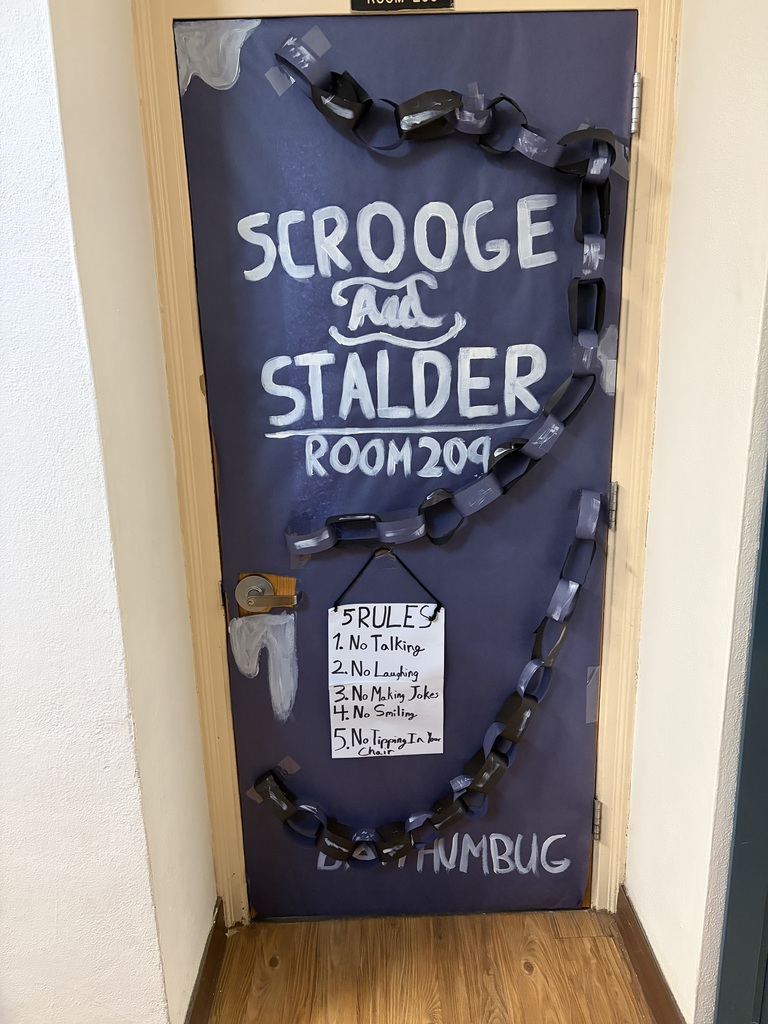 SCROOGE
And
STALDER
ROOM 209
5 RULES
1. No Talking
2. No Laughing
3. No Making Jokes
4. No Smiling
5. No Tipping In Your
Chair
HUMBUG